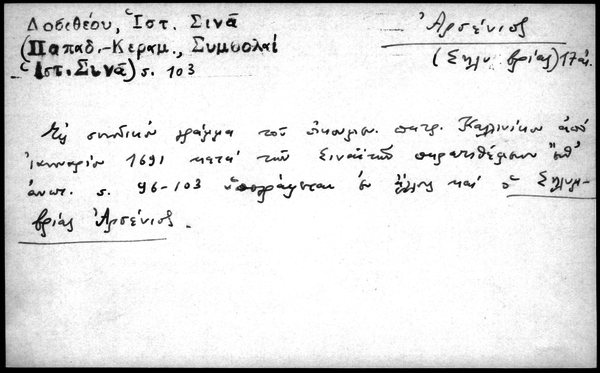 Δοσιθέου, Ἱστ. Σινᾶ
(Παπαδ.-Κεραμ., Συμβολαὶ
Ἱστ. Σινᾶ) σ. 103
Ἀρσένιος
(Σηλυβρίας) 17 αἰ.
Εἰς συνοδικὸν γράμμα τοῦ οἰκουμεν. πατρ. Καλλινίκου ἀπὸ
ἰανουαρίου 1691 κατὰ τῶν Σιναϊτῶν παρατιθέμενον
ἀνωτ. σ. 96-103 ὑπογράφεται ἐν τέλει καὶ ὁ Σηλυμ-
βρίας Ἀρσένιος.